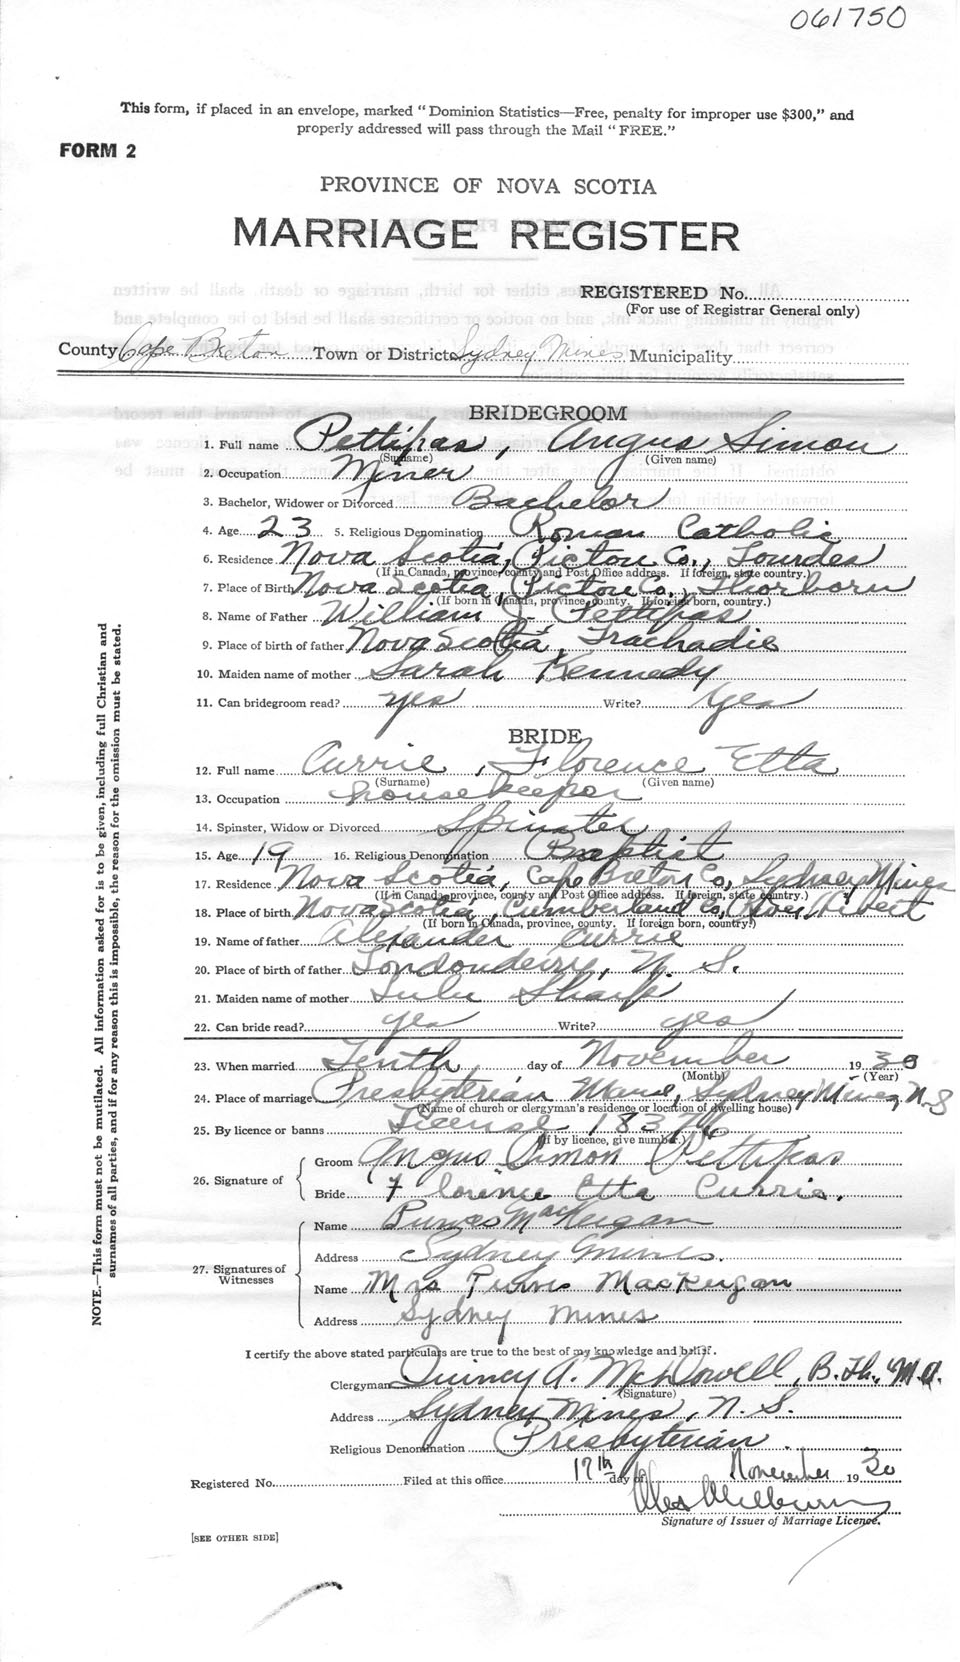 061750
This form, if placed in an envelope, marked "Dominion Statistics—Free, penalty for improper use $300," and
properly addressed will pass through the Mail "FREE."
FORM 2
PROVINCE OF NOVA SCOTIA
MARRIAGE REGISTER
REGISTERED No.
(For use of Registrar General only)
County Cape Breton Town or District Sydney Mines Municipality
BRIDEGROOM
1. Full name Pettipas, Angus Simon
(Surname) (Given name)
2. Occupation Miner
3. Bachelor, Widower or Divorced Bachelor
4. Age 23 5. Religious Denomination Roman Catholic
6. Residence Nova Scotia, Pictou Co., Lourdes
(If in Canada, province, county and Post Office address. If foreign, state country.)
7. Place of Birth Nova Scotia, Pictou Co., Thorborn
(If born in Canada, province, county. If foreign born, country.)
8. Name of Father William J. Pettipas
9. Place of birth of father Nova Scotia, Trachadie
10. Maiden name of mother Sarah Kennedy
11. Can bridegroom read? yes Write? Yes
BRIDE
12. Full name Currie, Florence Etta
(Surname) (Given name)
13. Occupation housekeeper
14. Spinster, Widow or Divorced Spinster
15. Age 19 16. Religious Denomination Baptist
17. Residence Nova Scotia, Cape Breton Co, Sydney Mines
(If in Canada, province, county and Post Office address. If foreign, state country.)
18. Place of birth Nova Scotia, Cumberland Co, River Hibert
(If born in Canada, province, county. If foreign born, country.)
19. Name of father Alexander Currie
20. Place of birth of father Londonderry, N. S.
21. Maiden name of mother Lulu Sharp
22. Can bride read? yes Write? yes
23. When married Tenth, day of November 1930
(Month) (Year)
24. Place of marriage Presbyterian Manse, Sydney Mines, N S
(Name of church or clergyman's residence or location of dwelling house)
25. By licence or banns License
(If by licence, give number.)
26. Signature of
Groom Angus Simon Pettipas
Bride Florence Etta Currie.
27. Signatures of Witnesses
Name Purves MacKeigan
Address Sydney Mines.
Name Mrs Purves MacKeigan
Address Sydney Mines
I certify the above stated particulars are true to the best of my knowledge and belief.
Clergyman Quincy A. McDowell, B.Th., M.A.
(Signature)
Address Sydney Mines, N. S.
Religious Denomination Presbyterian.
Registered No. Filed at this office 17th day of November 1930
Signature of Issuer of Marriage Licence.
[SEE OTHER SIDE]
NOTE.—This form must not be mutilated. All information asked for is to be given, including full Christian and
surnames of all parties, and if for any reason this is impossible, the reason for the omission must be stated.